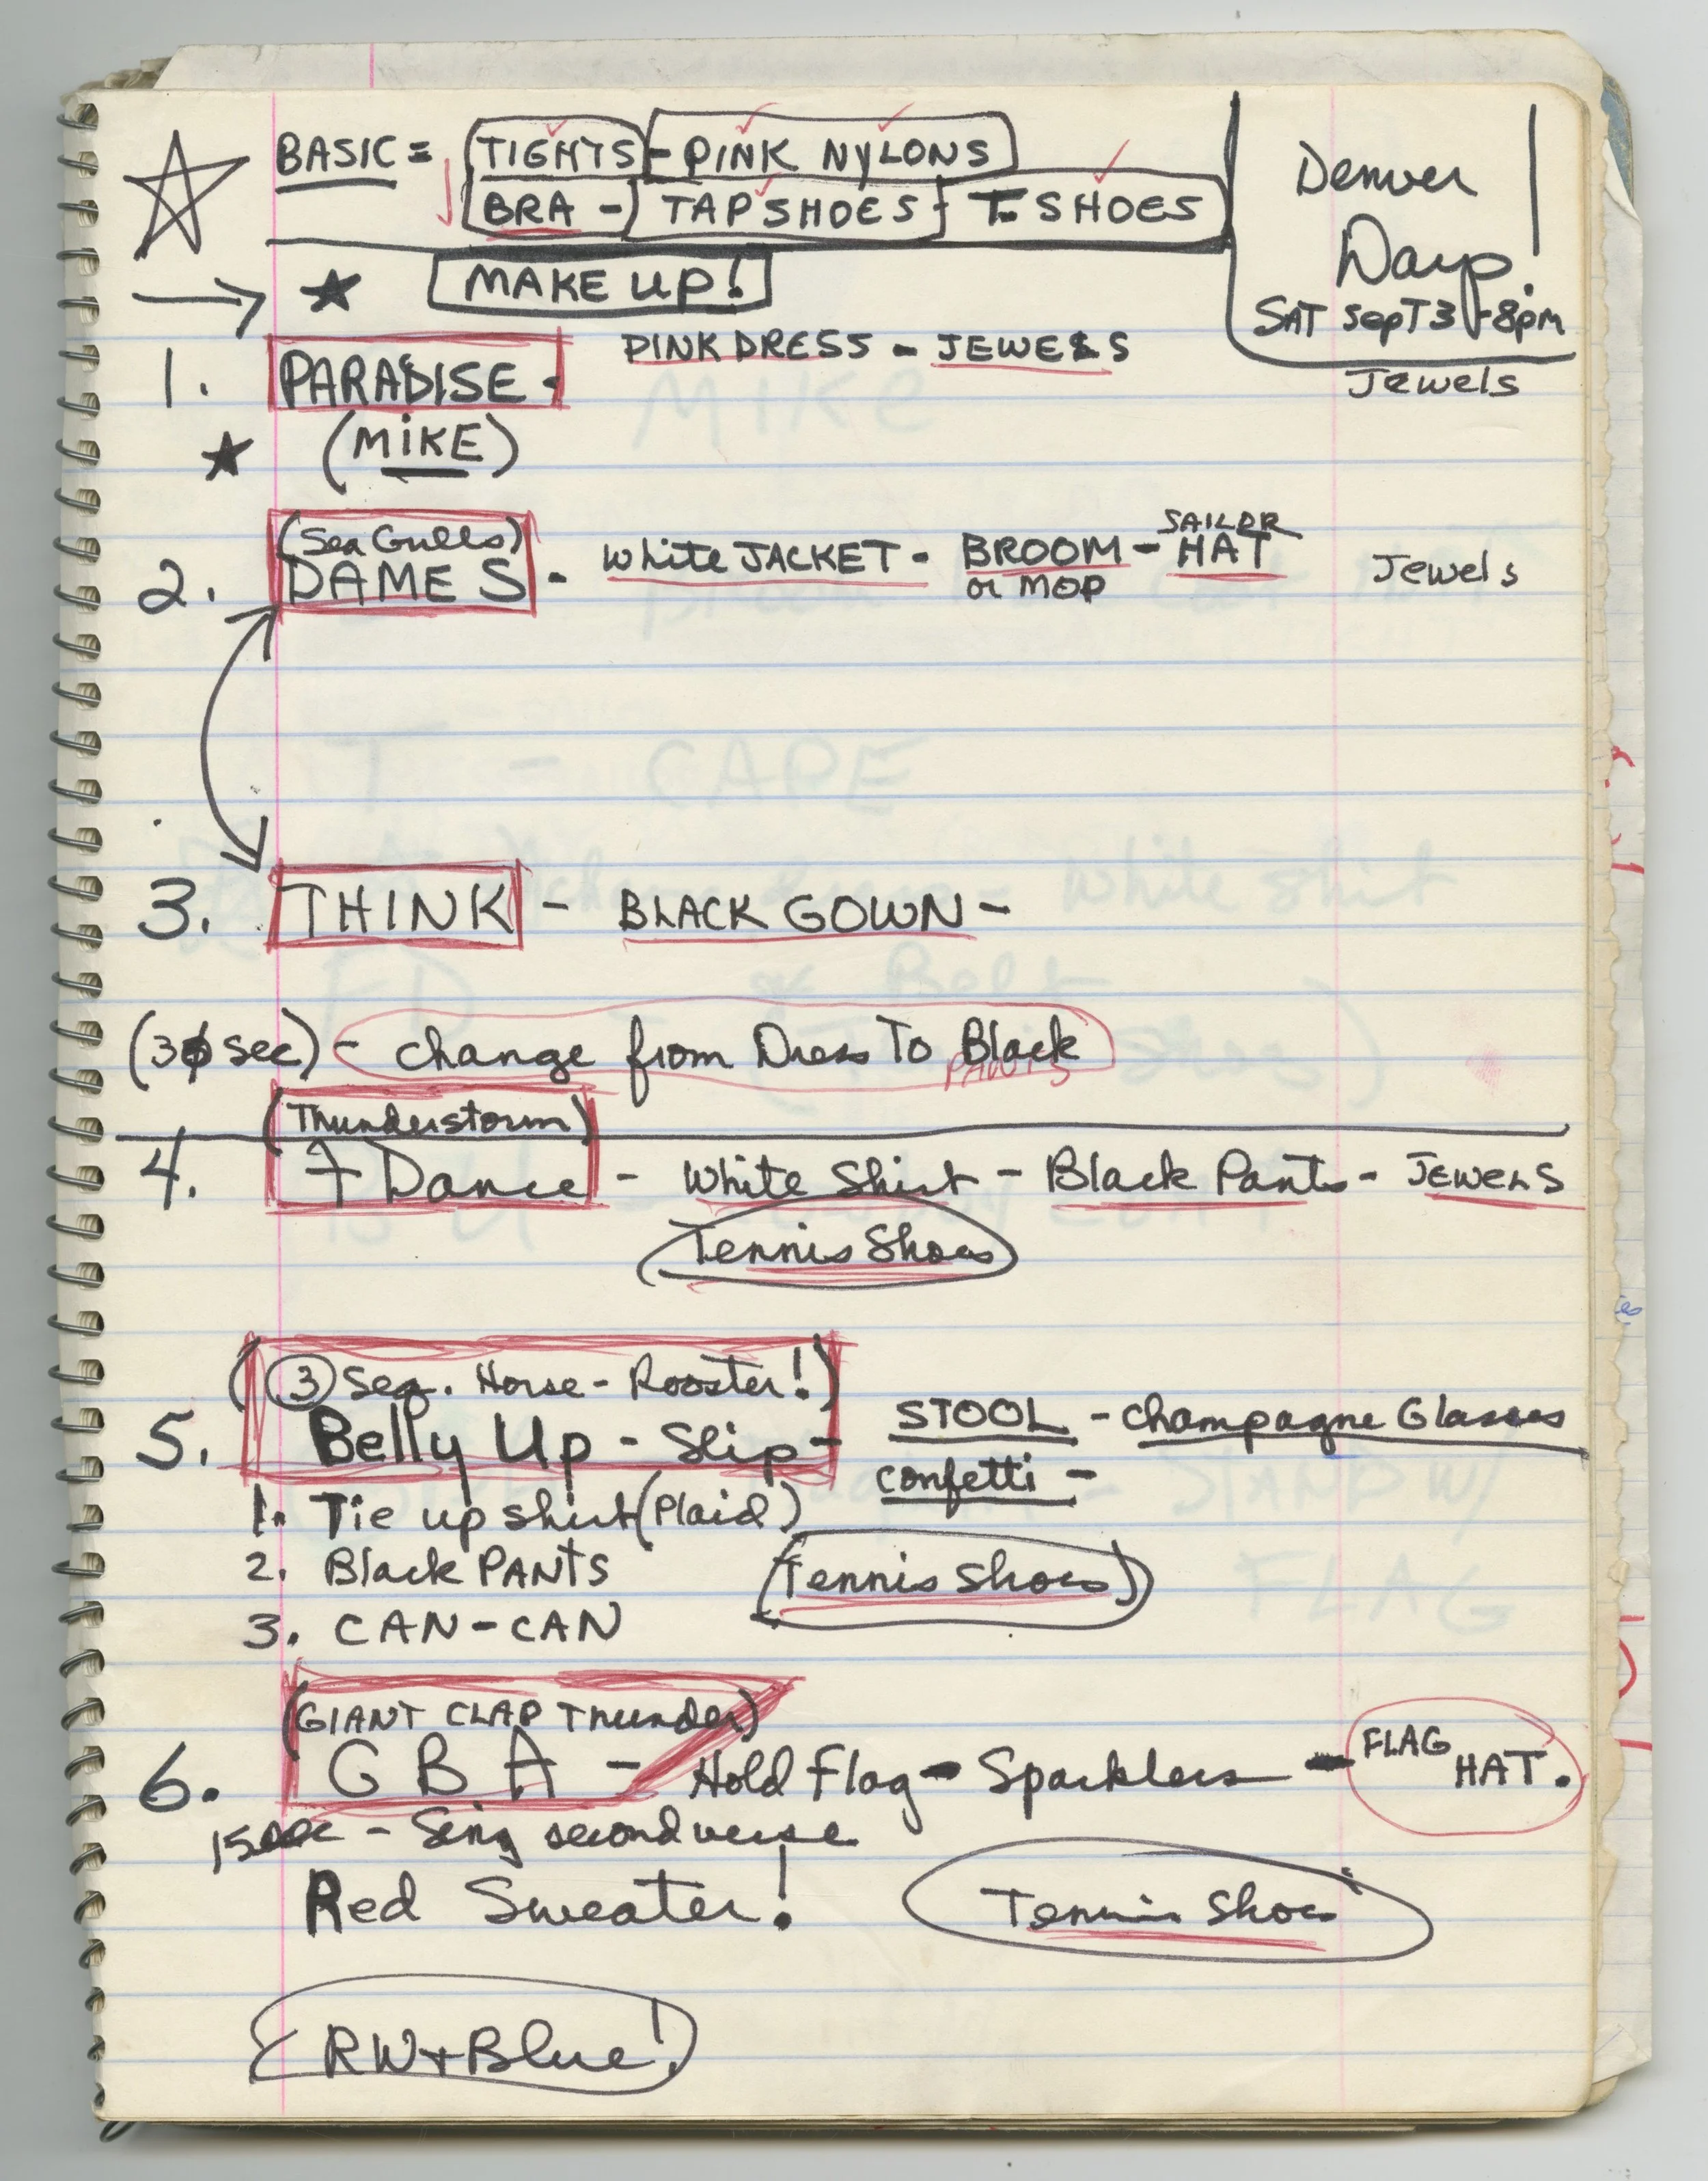 BASIC = TIGHTS - PINK NYLONS
BRA - TAP SHOES - T-SHOES
MAKE UP!
Denver
Days!
SAT SepT 3 - 8pm
Jewels
1. PARADISE - PINK DRESS - JEWELS
(MIKE)
(Sea Gulls)
2. DAMES - white JACKET - BROOM - SAILOR HAT
or MOP
Jewels
3. THINK - BLACK GOWN -
(30 sec) - change from Dress To Black
PANTS
(Thunderstorm)
4. 7 Dance - White Shirt - Black Pants - JEWELS
Tennis Shoes
(3 Seq. Horse - Rooster!)
5. Belly Up - Slip - STOOL - champagne Glasses
confetti -
1. Tie up shirt (Plaid)
2. Black PANTS
(Tennis Shoes)
3. CAN-CAN
(GIANT CLAP Thunder)
6. G B A - Hold Flag - Sparklers - FLAG HAT.
15 sec - Sing second verse
Red Sweater! Tennis Shoes
RW+Blue!